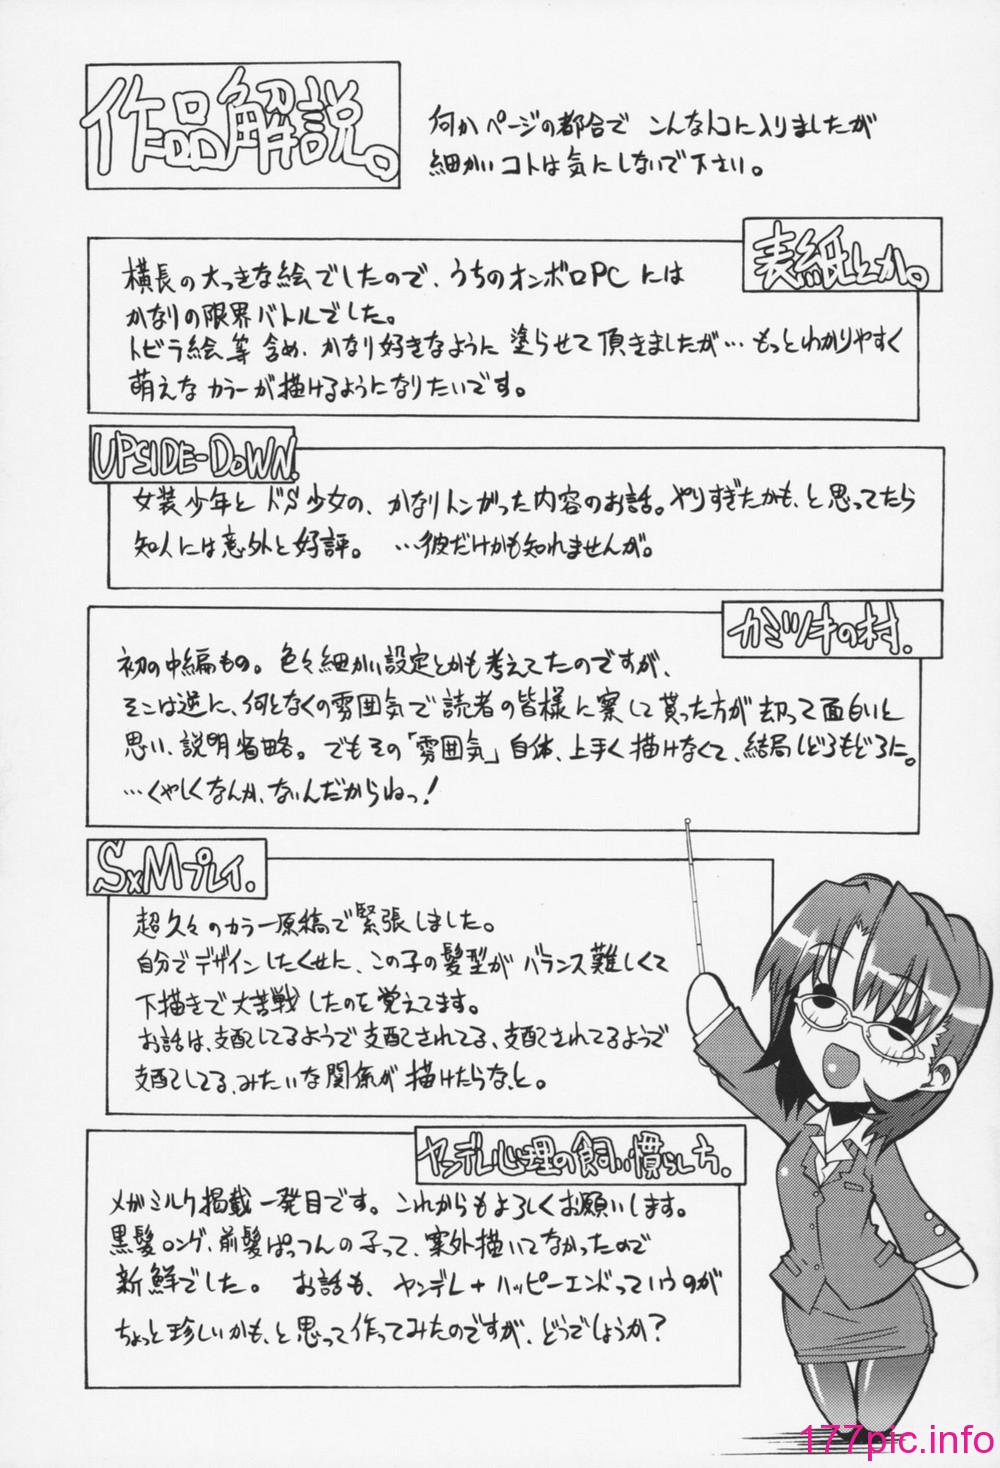 作品解説。
何かページの都合で こんなんコに入りましたが
細かいコトは気にしないで下さい。
表紙とか。
横長の大っきな絵でしたので、うちのオンボロPCには
かなりの限界バトルでした。
トビラ絵等含め、かなり好きなように塗らせて頂きましたが…もっとわかりやすく
萌えなカラーが描けるようになりたいです。
UPSIDE-DOWN.
女装少年とドS少女の、かなりトンがった内容のお話。やりすぎたかも、と思ってたら
知人には意外と好評。 …彼だけかも知れませんが。
カミツキの村.
初の中編もの。色々細かい設定とかも考えてたのですが、
そこは逆に、何となくの雰囲気で読者の皆様に察して貰った方が却って面白いと
思い、説明省略。でもその「雰囲気」自体、上手く描けなくて、結局しどろもどろに。
…くやしくなんか、ないんだからねっ!
SxMプレイ.
超久々のカラー原稿で緊張しました。
自分でデザインしたくせに、この子の髪型がバランス難しくて
下描きで大苦戦したのを覚えてます。
お話は、支配してるようで支配されてる、支配されてるようで
支配してる、みたいな関係が描けたらな、と。
ヤンデレ心理の飼い慣らし方.
メガミルク掲載一発目です。これからもよろしくお願いします。
黒髪ロング、前髪ぱっつんの子って、案外描いてなかったので
新鮮でした。 お話も、ヤンデレ+ハッピーエンドっていうのが
ちょっと珍しいかも、と思って作ってみたのですが、どうでしょうか?
177pic.info